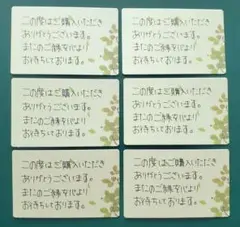 この度はご購入いただき
ありがとうございます。
またのご縁を心より
お待ちしております。
この度はご購入いただき
ありがとうございます。
またのご縁を心より
お待ちしております。
この度はご購入いただき
ありがとうございます。
またのご縁を心より
お待ちしております。
この度はご購入いただき
ありがとうございます。
またのご縁を心より
お待ちしております。
この度はご購入いただき
ありがとうございます。
またのご縁を心より
お待ちしております。
この度はご購入いただき
ありがとうございます。
またのご縁を心より
お待ちしております。